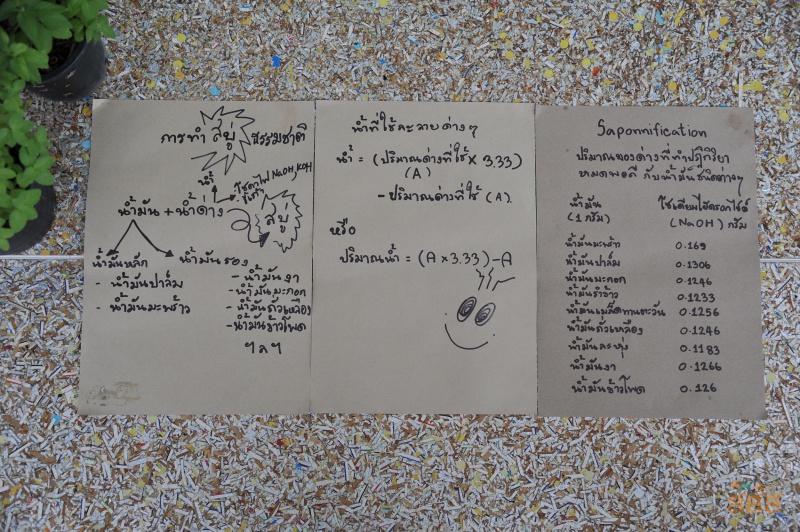 การทำ สบู่ ธรรมชาติ
น้ำ
โซดาไฟ NaOH, KOH
ขี้เถ้า
น้ำมัน + น้ำด่าง
สบู่
น้ำมันหลัก
- น้ำมันปาล์ม
- น้ำมันมะพร้าว
น้ำมันรอง
- น้ำมันงา
- น้ำมันมะกอก
- น้ำมันถั่วเหลือง
- น้ำมันข้าวโพด
ฯลฯ
น้ำที่ใช้ละลายด่างๆ
น้ำ = (ปริมาณด่างที่ใช้ x 3.33)
(A)
- ปริมาณด่างที่ใช้ (A).
หรือ
ปริมาณน้ำ = (A x 3.33) - A
Saponnification
ปริมาณของด่างที่ทำปฏิกิริยา
หมดพอดี กับน้ำมันชนิดต่างๆ
น้ำมัน โซเดียมไฮดรอกไซด์
(1 กรัม) (NaOH) กรัม
น้ำมันมะพร้าว 0.169
น้ำมันปาล์ม 0.1306
น้ำมันมะกอก 0.1246
น้ำมันรำข้าว 0.1233
น้ำมันเมล็ดทานตะวัน 0.1256
น้ำมันถั่วเหลือง 0.1246
น้ำมันละหุ่ง 0.1183
น้ำมันงา 0.1266
น้ำมันข้าวโพด 0.126